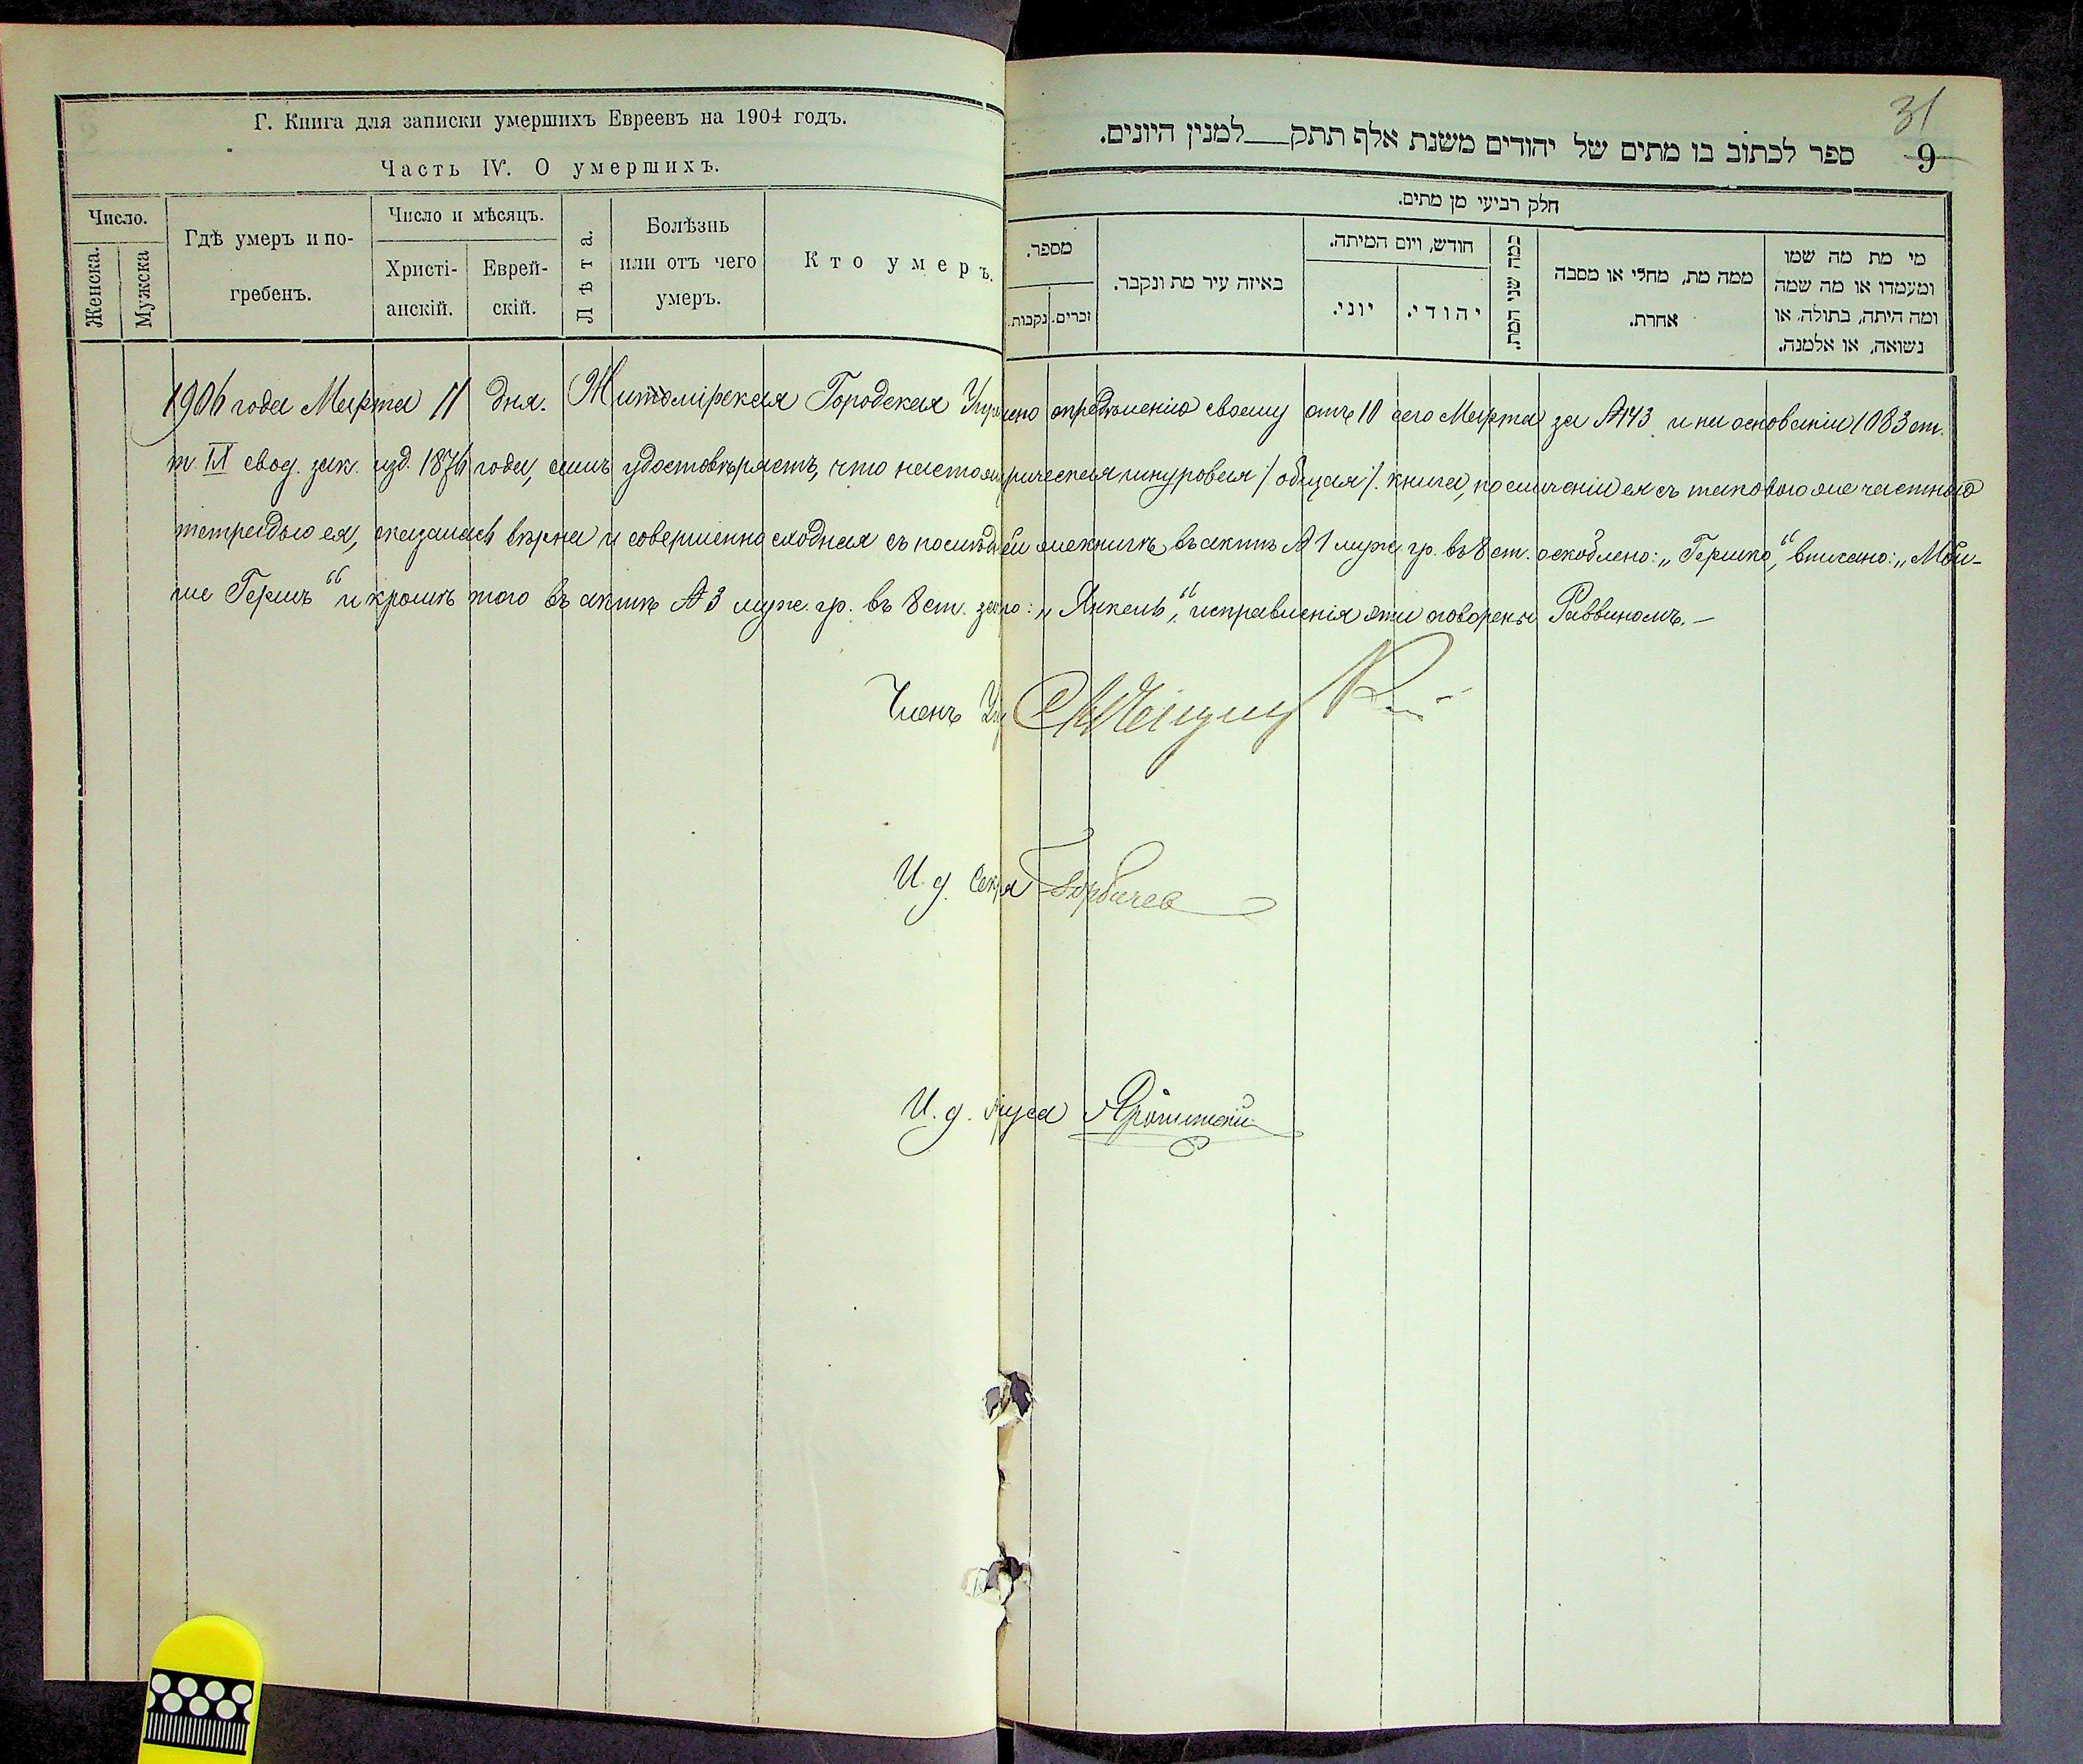 Г. Книга для записки умершихъ Евреевъ на 1904 годъ.
Часть IV. О умершихъ.
Число.
Женска.
Мужска
Гдѣ умеръ и по-
гребенъ.
Число и мѣсяцъ.
Христі-
анскій.
Еврей-
скій.
Лѣта.
Болѣзнь
или отъ чего
умеръ.
Кто умеръ.
31
9
ספר לכתוב בו מתים של יהודים משנת אלף תתק___למנין היונים.
חלק רביעי מן מתים.
מספר.
זכרים.
נקבות.
באיזה עיר מת ונקבר.
חודש, ויום המיתה.
יוני.
יהודי.
כמה שני המת.
ממה מת, מחלי או מסבה
אחרת.
מי מת מה שמו
ומעמדו או מה שמה
ומה היתה, בתולה, או
נשואה, או אלמנה.
1906 года Марта 11 дня. Житомірская Городская опредѣленію своему отъ 10 сего Марта за №143 и на основаніи 1083 ст.
т. IX свод. зак. изд. 1876 года, симъ удостовѣряетъ, что шнуровая /общая/. книга, по сличеніи ея съ таковою же частною
тетрадью ея, оказалась вѣрна и совершенно сходная съ въ актѣ №1 муж. гр. въ 8 ст. оскоблено: „Гершко," вписано: „Мой-
ше Гершъ" и кромѣ того въ актѣ №3 муж. гр. въ 8 ст. „Янкель," исправленія эти оговорены Раввиномъ.—
Членъ
И. д.
И. д.